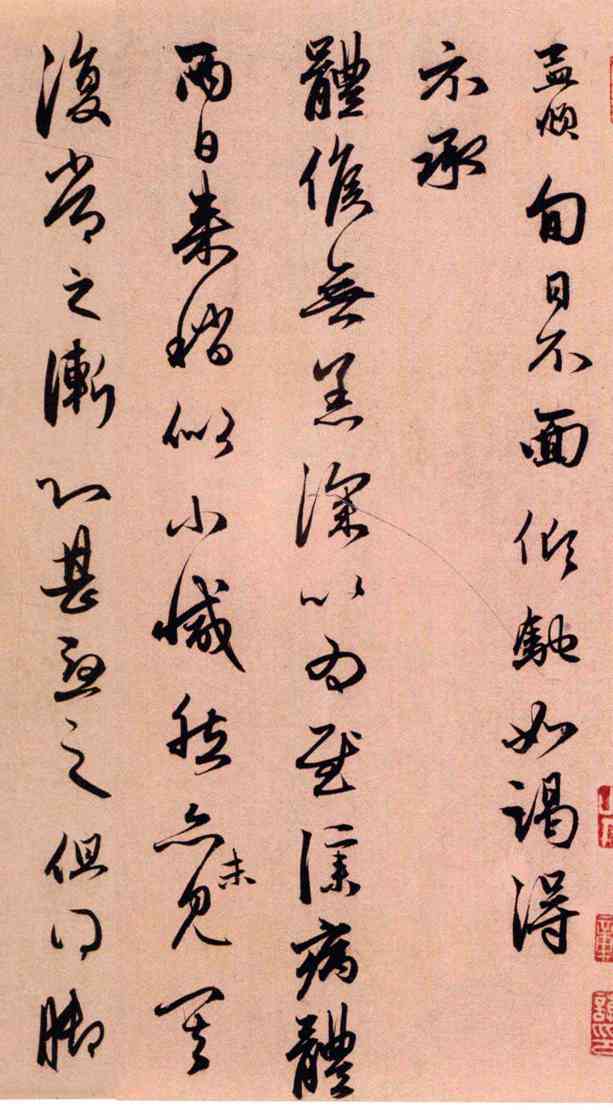 孟頫旬日不面傾馳如渴得
示承
體候無恙深以為慰僕病體
兩日來稍似小減然亦未見其
復常之漸甚之但脚